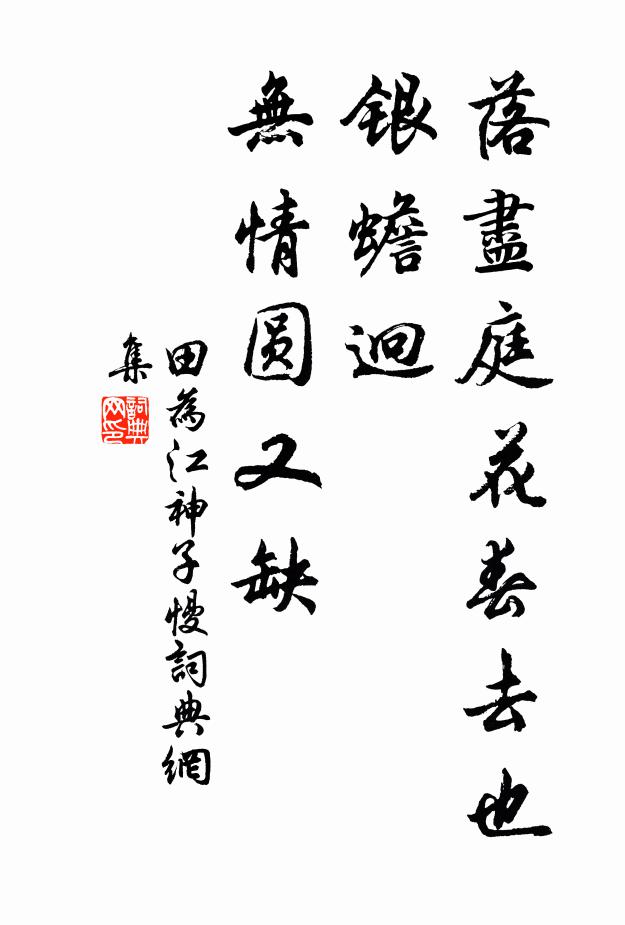 落盡庭花春去也
銀蟾迥
無情圆又缺
田為江神子慢詞典網
集
詞典
网印